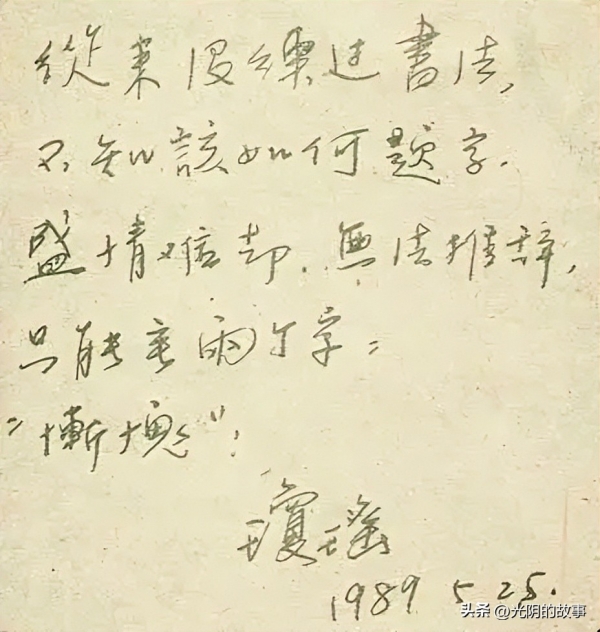 從來沒練過書法，
不知該如何題字．
盛情难却．無法推辞，
只能寫兩个字：
“慚愧”！
瓊瑤
1989 5 25.
头条 @光阴的故事